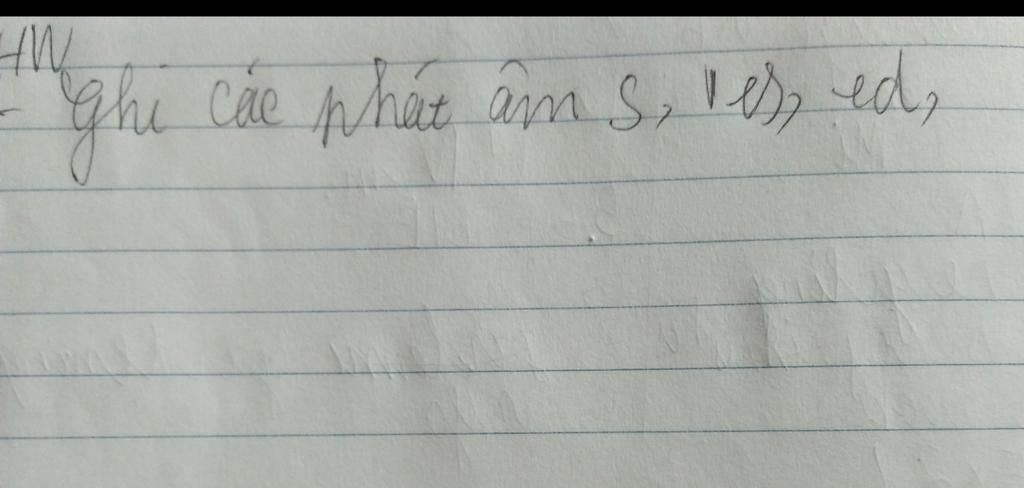 HW
- Ghi các phát âm s, es, ed,